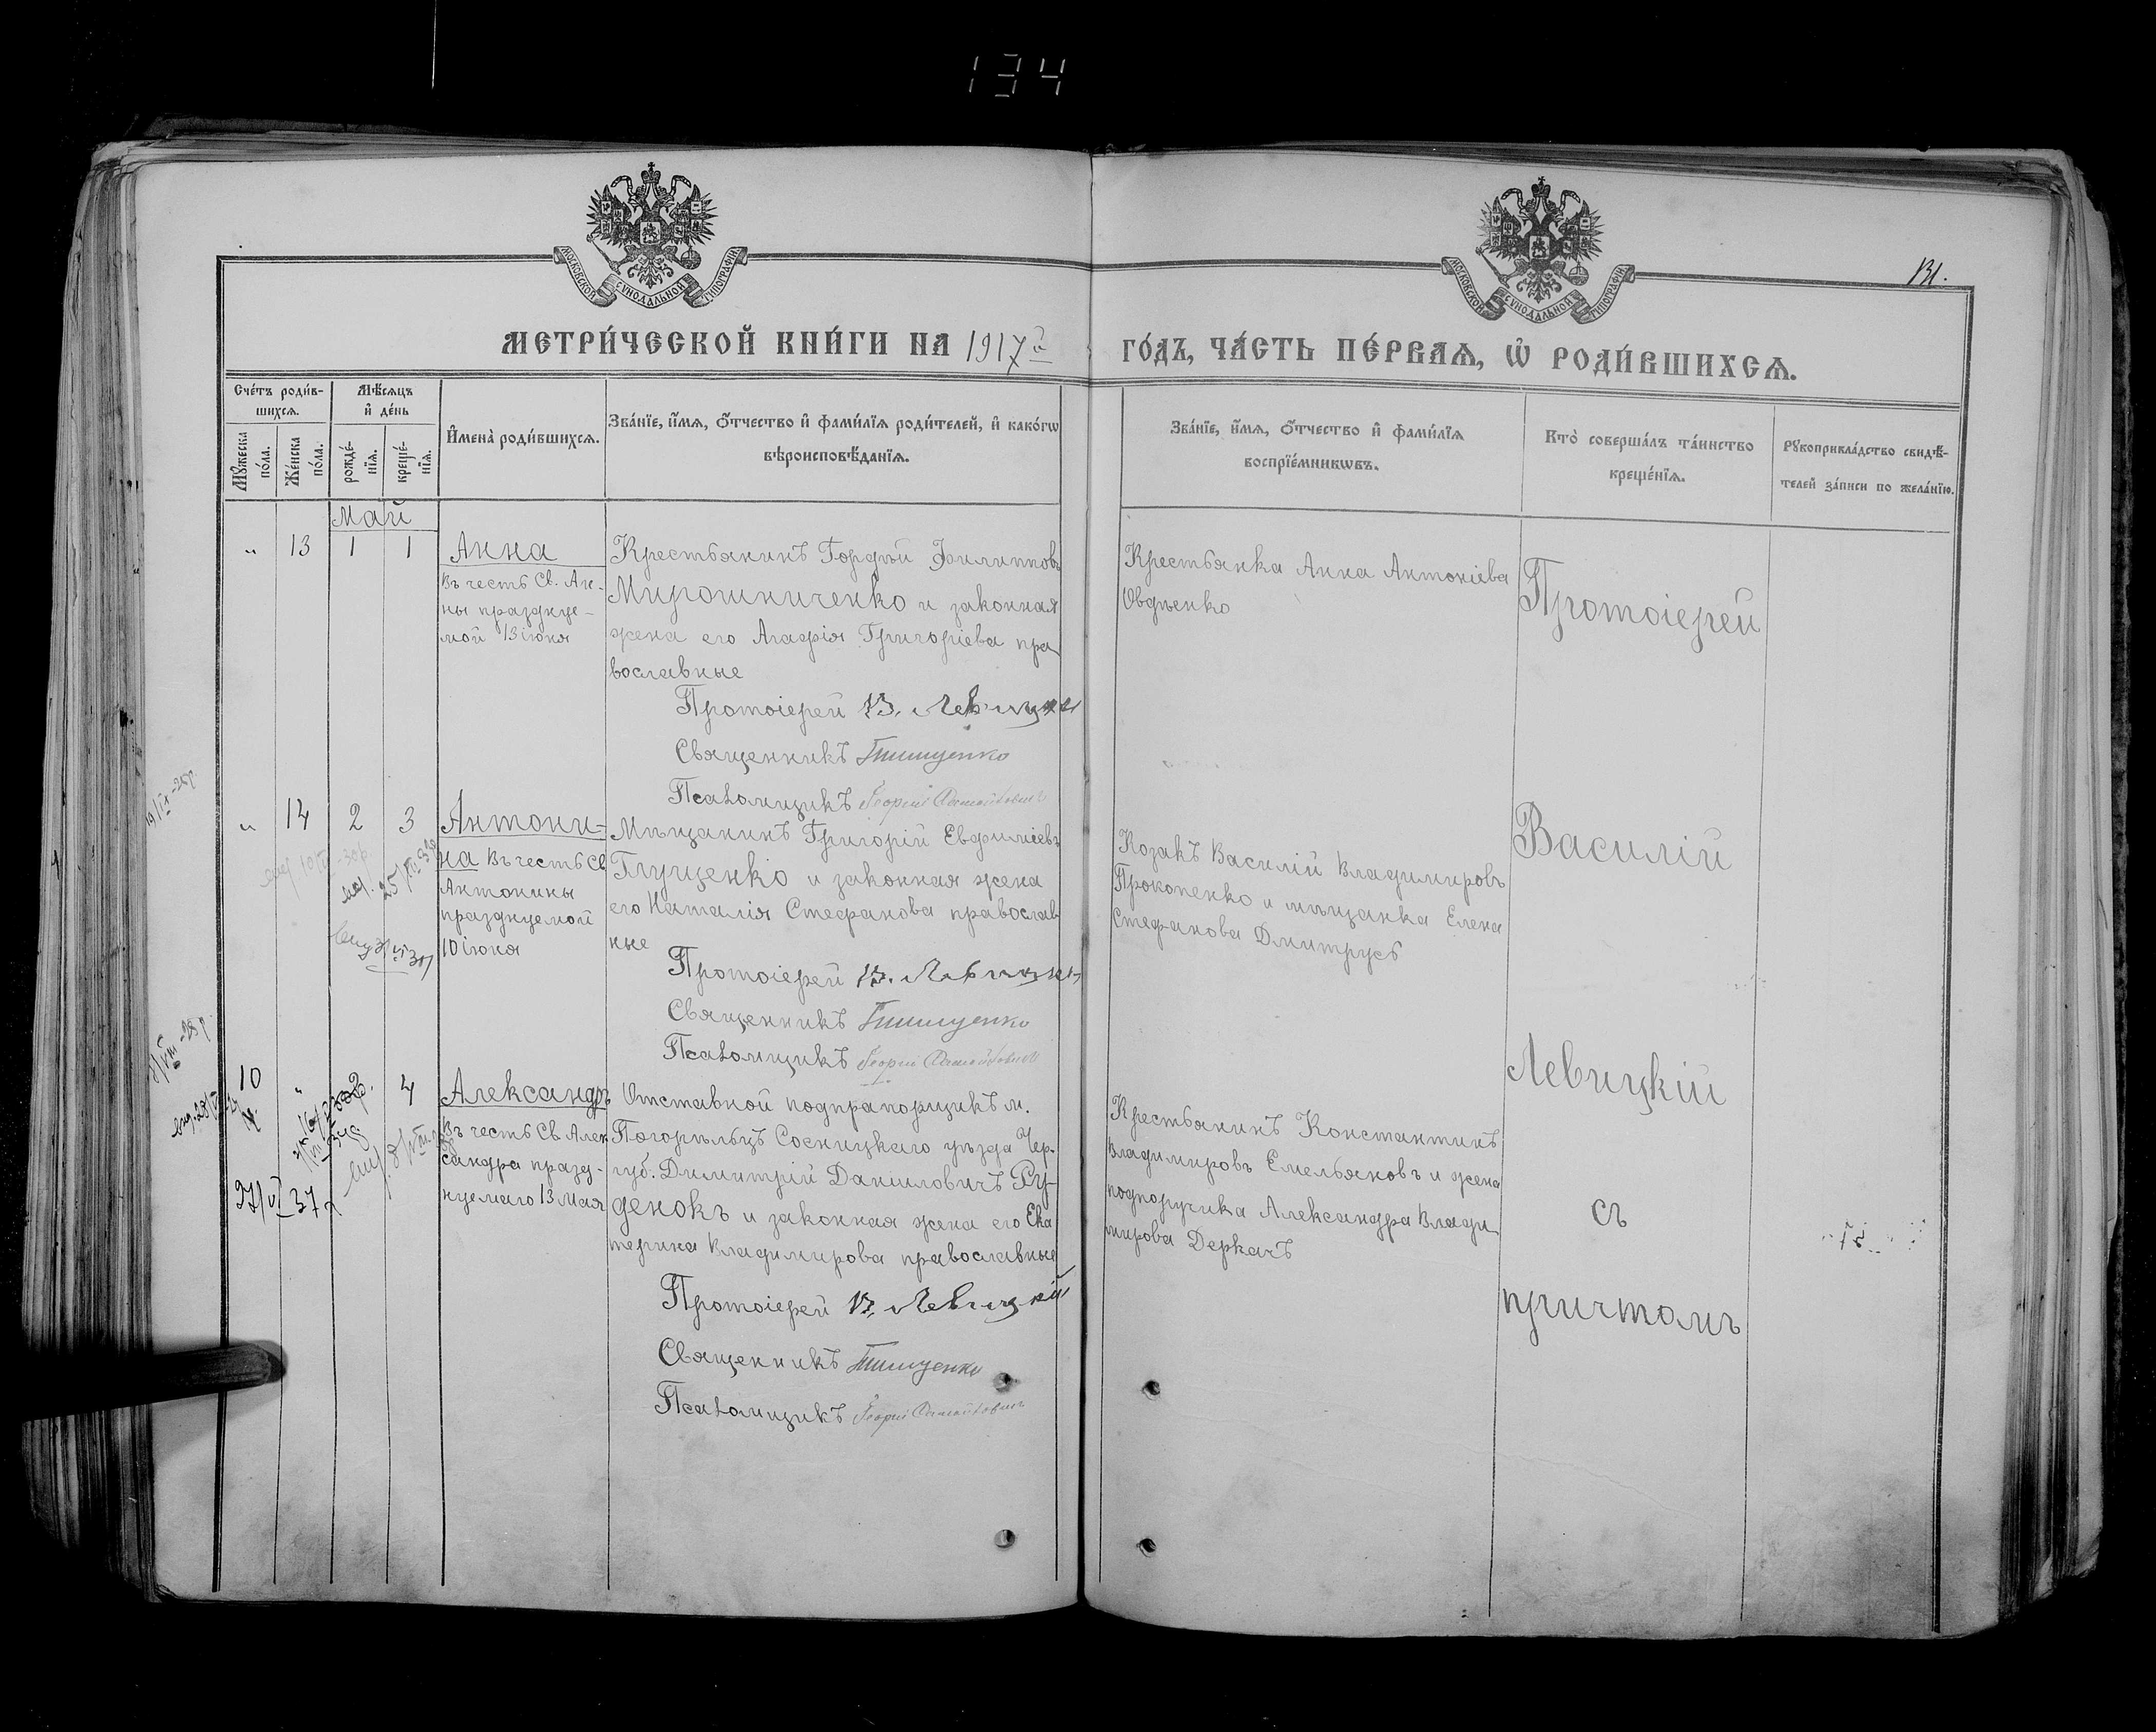 134
МОСКОВСКОЙ СѴНОДАЛЬНОЙ ТИПОГРАФІИ
МОСКОВСКОЙ СѴНОДАЛЬНОЙ ТИПОГРАФІИ
131.
МЕТРИ́ЧЕСКОЙ КНИ́ГИ НА 1917й
ГО́ДЪ, ЧА́СТЬ ПЕ́РВАѦ, Ѡ҆ РОДИ́ВШИХСѦ.
Сче́тъ роди́в-
шихсѧ.
Мѣ́сѧцъ
и҆ де́нь
Мꙋ́жеска по́ла.
Же́нска по́ла.
рожде́-
нїѧ.
креще́-
нїѧ.
И҆мена̀ роди́вшихсѧ.
Зва́нїе, и҆́мѧ, ѻ҆́тчество и҆ фами́лїѧ роди́телей, и҆ како́гѡ
вѣроисповѣ́данїѧ.
Зва́нїе, и҆́мѧ, ѻ҆́тчество и҆ фами́лїѧ
воспрїе́мникѡвъ.
Кто̀ соверша́лъ та́инство
креще́нїѧ.
Рꙋкоприкла́дство свидѣ́-
телей за́писи по жела́нїю.
Май
" 13 1 1
Анна
Въ честь Св. Ан-
ны праздуе-
мой 13 іюня
Крестьянинъ Гордѣй Филипповъ
Мирошниченко и законная
жена его Агафія Григоріева пра
вославные
Протоіерей В. Левицкій
Священникъ Тимиченко
Псаломщикъ Георгій
Крестьянка Анна Антоніева
Овдѣенко
" 14 2 3
Антони-
на Въ честь Св
Антонины
празднуемой
10 іюня
Мѣщанинъ Григорій Евфиміевъ
Глущенко и законная жена
его Наталія Стефанова православ
ные
Протоіерей В. Левицкій
Священникъ
Псаломщикъ Георгій
Козакъ Василій Владимировъ
Прокопенко и мѣщанка Елена
Стефанова Дмитрусь
10 " 4
27/VI 37
Александръ
Въ честь Св Алек
сандра празд-
нуемаго 13 Мая
Отставной подпрапорщикъ м.
Погорѣльцъ Сосницкаго уѣзда Чер.
губ. Димитрій Даниловичъ Ру-
денокъ и законная жена его Ека
терина Владимирова православные
Протоіерей В. Левицкій
Священникъ
Псаломщикъ Георгій
Крестьянинъ Константинъ
Владимировъ Емельяновъ и жена
подпоручика Александра Влади
мирова Деркачъ
Протоіерей
Василій
Левицкій
съ
причтомъ